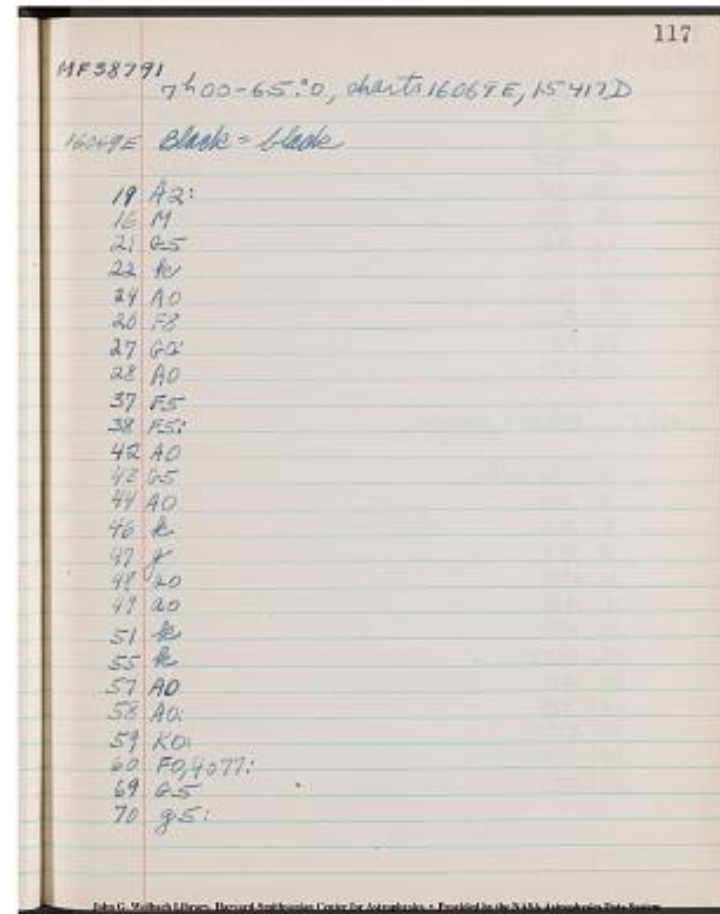 117
MF38791
7h00-65.°0, charts 16069E, 15417D
16069E Blank = blade
19 A2:
16 M
21 G5
22 k
24 A0
20 F8
27 G0:
28 A0
37 F5
38 F5:
42 A0
43 G5
44 A0
46 k
47 g
48 a0
49 a0
51 k
55 k
57 A0
58 A0:
59 K0:
60 F0,4077:
69 G5
70 g5:
John G. Wolbach Library, Harvard-Smithsonian Center for Astrophysics • Provided by the NASA Astrophysics Data System